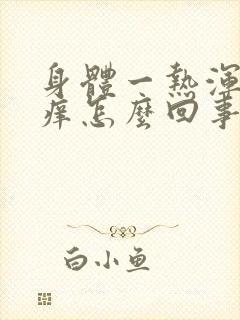 身體一熱渾
癢怎麼回事
白小鱼